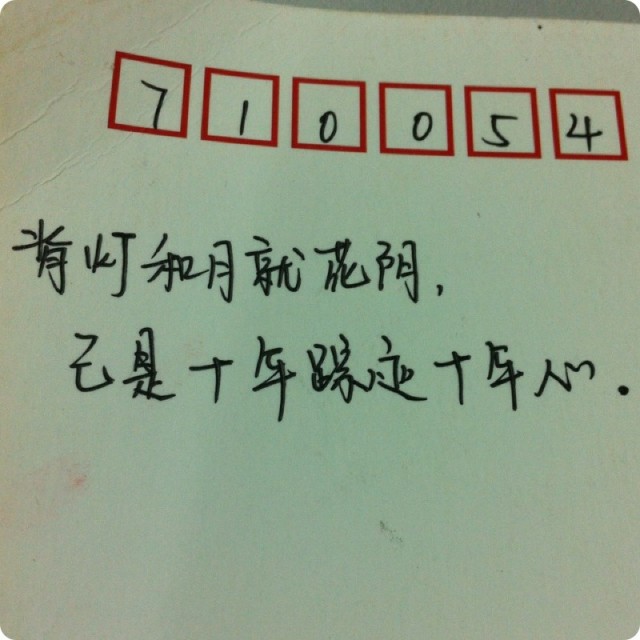 710054
背灯和月就花阴,
已是十年踪迹十年心.